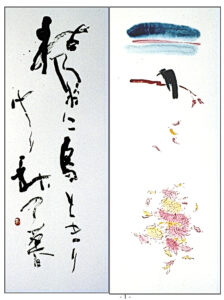 枯枝に烏とまり
けり秋の暮